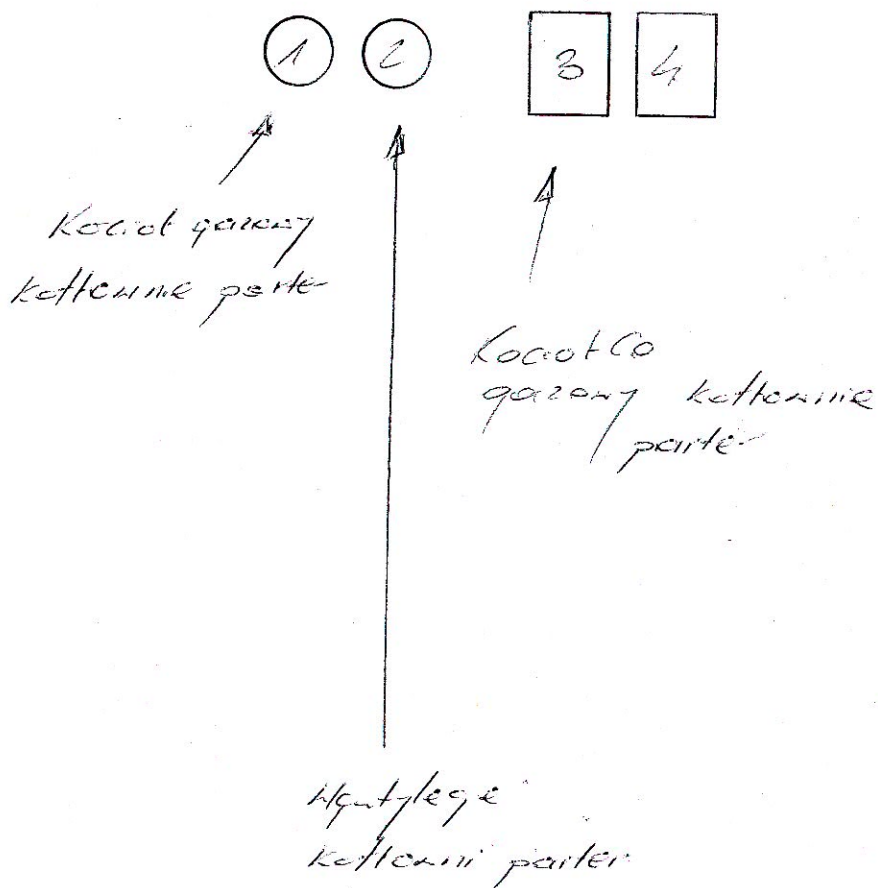 1 2 3 4
Kocioł gazowy
kotłownie parter
Kocioł Co
gazowy kotłownie
parter
Wentylacje
kotłowni parter